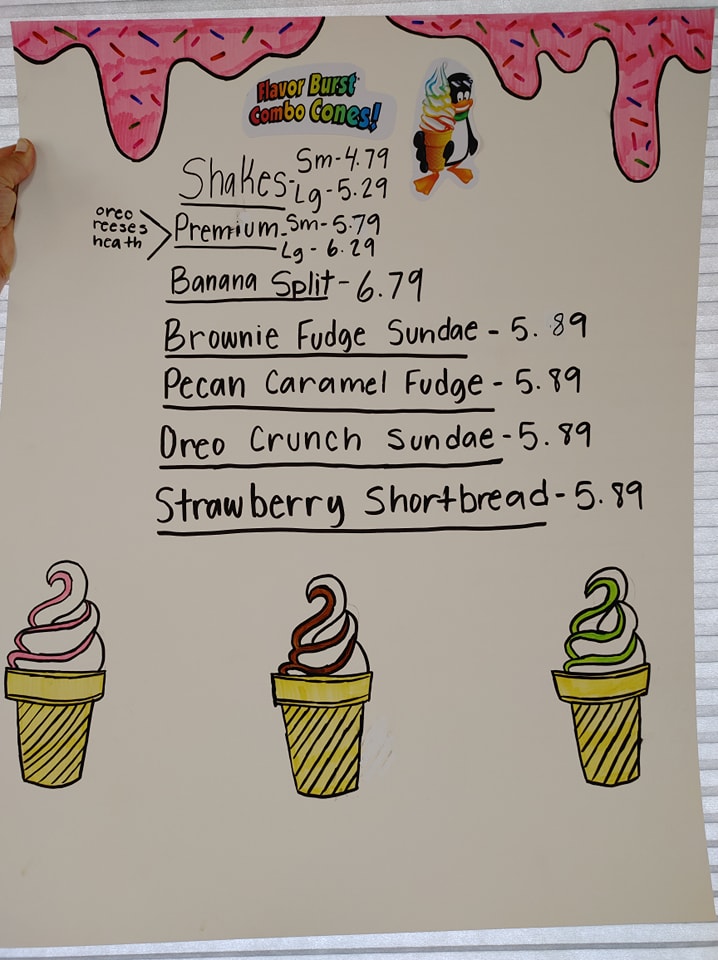 Flavor Burst
Combo Cones!
Shakes- Sm-4.79
Lg-5.29
oreo
reeses
heath
Premium-Sm-5.79
Lg - 6.29
Banana Split- 6.79
Brownie Fudge Sundae - 5.89
Pecan Caramel Fudge - 5.89
Oreo Crunch Sundae-5.89
Strawberry Shortbread-5.89